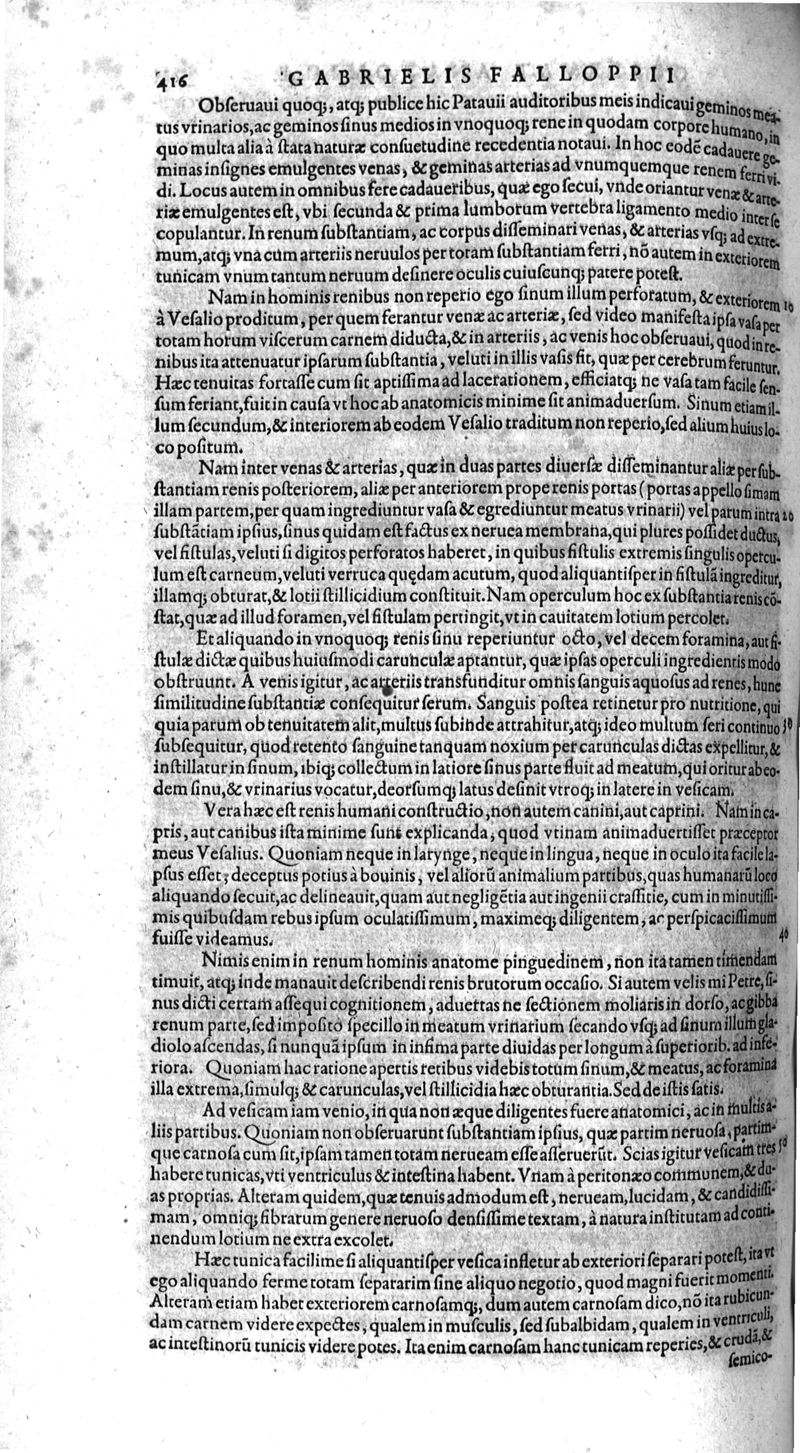 416 GABRIELIS FALLOPPII
Obſeruaui quoq;, atq; publice hic Patauii auditoribus meis indicaui geminos mea-
tus vrinarios, ac geminos ſinus medios in vnoquoq; rene in quodam corpore humano, in
quo multa alia à ſtata naturæ conſuetudine recedentia notaui. In hoc eodē cadauere ge-
minas inſignes emulgentes venas, & geminas arterias ad vnumquemque renem ferri vi-
di. Locus autem in omnibus fere cadaueribus, quæ ego ſecui, vnde oriantur venæ & arte-
riæ emulgentes eſt, vbi ſecunda & prima lumborum vertebra ligamento medio inter ſe
copulantur. In renum ſubſtantiam, ac corpus diſſeminari venas, & arterias vſq; ad extre-
mum, atq; vna cum arteriis neruulos per totam ſubſtantiam ferri, nō autem in exteriorem
tunicam vnum tantum neruum deſinere oculis cuiuſcunq; patere poteſt.
Nam in hominis renibus non reperio ego ſinum illum perforatum, & exteriorem 10
à Veſalio proditum, per quem ferantur venæ ac arteriæ, ſed video manifeſta ipſa vaſa per
totam horum viſcerum carnem diducta, & in arteriis, ac venis hoc obſeruaui, quod in re-
nibus ita attenuatur ipſarum ſubſtantia, veluti in illis vaſis fit, quæ per cerebrum feruntur.
Hæc tenuitas fortaſſe cum ſit aptiſſima ad lacerationem, efficiatq; ne vaſa tam facile ſen-
ſum feriant, fuit in cauſa vt hoc ab anatomicis minime ſit animaduerſum. Sinum etiam il-
lum ſecundum, & interiorem ab eodem Veſalio traditum non reperio, ſed alium huius lo-
co poſitum.
Nam inter venas & arterias, quæ in duas partes diuerſæ diſſeminantur aliæ per ſub-
ſtantiam renis poſteriorem, aliæ per anteriorem prope renis portas (portas appello ſimam
illam partem, per quam ingrediuntur vaſa & egrediuntur meatus vrinarii) vel parum intra 20
ſubſtātiam ipſius, ſinus quidam eſt factus ex neruea membrana, qui plures poſſidet ductus,
vel fiſtulas, veluti ſi digitos perforatos haberet, in quibus fiſtulis extremis ſingulis opercu-
lum eſt carneum, veluti verruca quędam acutum, quod aliquantiſper in fiſtulā ingreditur,
illamq; obturat, & lotii ſtillicidium conſtituit. Nam operculum hoc ex ſubſtantia renis cō-
ſtat, quæ ad illud foramen, vel fiſtulam pertingit, vt in cauitatem lotium percolet.
Et aliquando in vnoquoq; renis ſinu reperiuntur octo, vel decem foramina, aut fi-
ſtulæ dictæ quibus huiuſmodi carunculæ aptantur, quæ ipſas operculi ingredientis modo
obſtruunt. A venis igitur, ac arteriis transfunditur omnis ſanguis aquoſus ad renes, hunc
ſimilitudine ſubſtantiæ conſequitur ſerum. Sanguis poſtea retinetur pro nutritione, qui
quia parum ob tenuitatem alit, multus ſubinde attrahitur, atq; ideo multum ſeri continuo 30
ſubſequitur, quod retento ſanguine tanquam noxium per carunculas dictas expellitur, &
inſtillatur in ſinum, ibiq; collectum in latiore ſinus parte fluit ad meatum, qui oritur ab eo-
dem ſinu, & vrinarius vocatur, deorſumq; latus deſinit vtroq; in latere in veſicam.
Vera hæc eſt renis humani conſtructio, non autem canini, aut caprini. Nam in ca-
pris, aut canibus iſta minime ſunt explicanda, quod vtinam animaduertiſſet præceptor
meus Veſalius. Quoniam neque in larynge, neque in lingua, neque in oculo ita facile la-
pſus eſſet, deceptus potius à bouinis, vel aliorū animalium partibus, quas humanarū loco
aliquando ſecuit, ac delineauit, quam aut negligētia aut ingenii craſſitie, cum in minutiſſi-
mis quibuſdam rebus ipſum oculatiſſimum, maximeq; diligentem, ac perſpicaciſſimum
fuiſſe videamus. 40
Nimis enim in renum hominis anatome pinguedinem, non ita tamen timendam
timuit, atq; inde manauit deſcribendi renis brutorum occaſio. Si autem velis mi Petre, ſi-
nus dicti certam aſſequi cognitionem, aduertas ne ſectionem moliaris in dorſo, ac gibba
renum parte, ſed impoſito ſpecillo in meatum vrinarium ſecando vſq; ad ſinum illum gla-
diolo aſcendas, ſi nunquā ipſum in infima parte diuidas per longum à ſuperiorib. ad infe-
riora. Quoniam hac ratione apertis retibus videbis totum ſinum, & meatus, ac foramina
illa extrema, ſimulq; & carunculas, vel ſtillicidia hæc obturantia. Sed de iſtis ſatis.
Ad veſicam iam venio, in qua non æque diligentes fuere anatomici, ac in multis a-
liis partibus. Quoniam non obſeruarunt ſubſtantiam ipſius, quæ partim neruoſa, partim-
que carnoſa cum ſit, ipſam tamen totam nerueam eſſe aſſeruerūt. Scias igitur veſicam tres 50
habere tunicas, vti ventriculus & inteſtina habent. Vnam à peritonæo communem, & du-
as proprias. Alteram quidem, quæ tenuis admodum eſt, nerueam, lucidam, & candidiſſi-
mam, omniq; fibrarum genere neruoſo denſiſſime textam, à natura inſtitutam ad conti-
nendum lotium ne extra excolet.
Hæc tunica facilime ſi aliquantiſper veſica infletur ab exteriori ſeparari poteſt, ita vt
ego aliquando ferme totam ſepararim ſine aliquo negotio, quod magni fuerit momenti.
Alteram etiam habet exteriorem carnoſamq;, dum autem carnoſam dico, nō ita rubicun-
dam carnem videre expectes, qualem in muſculis, ſed ſubalbidam, qualem in ventriculi,
ac inteſtinorū tunicis videre potes. Ita enim carnoſam hanc tunicam reperies, & crudā, &
ſemico-